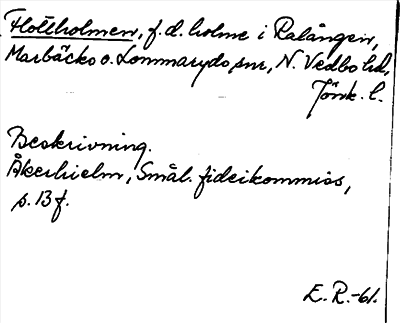 Flottholmen, f.d. holme i Ralången,
Marbäck o. Lommaryds snr, N. Vedbo hd,
Jönk. l.
Beskrivning.
Åkerhielm, Smål. fideikommiss,
s. 13 f.
E. R. -61.